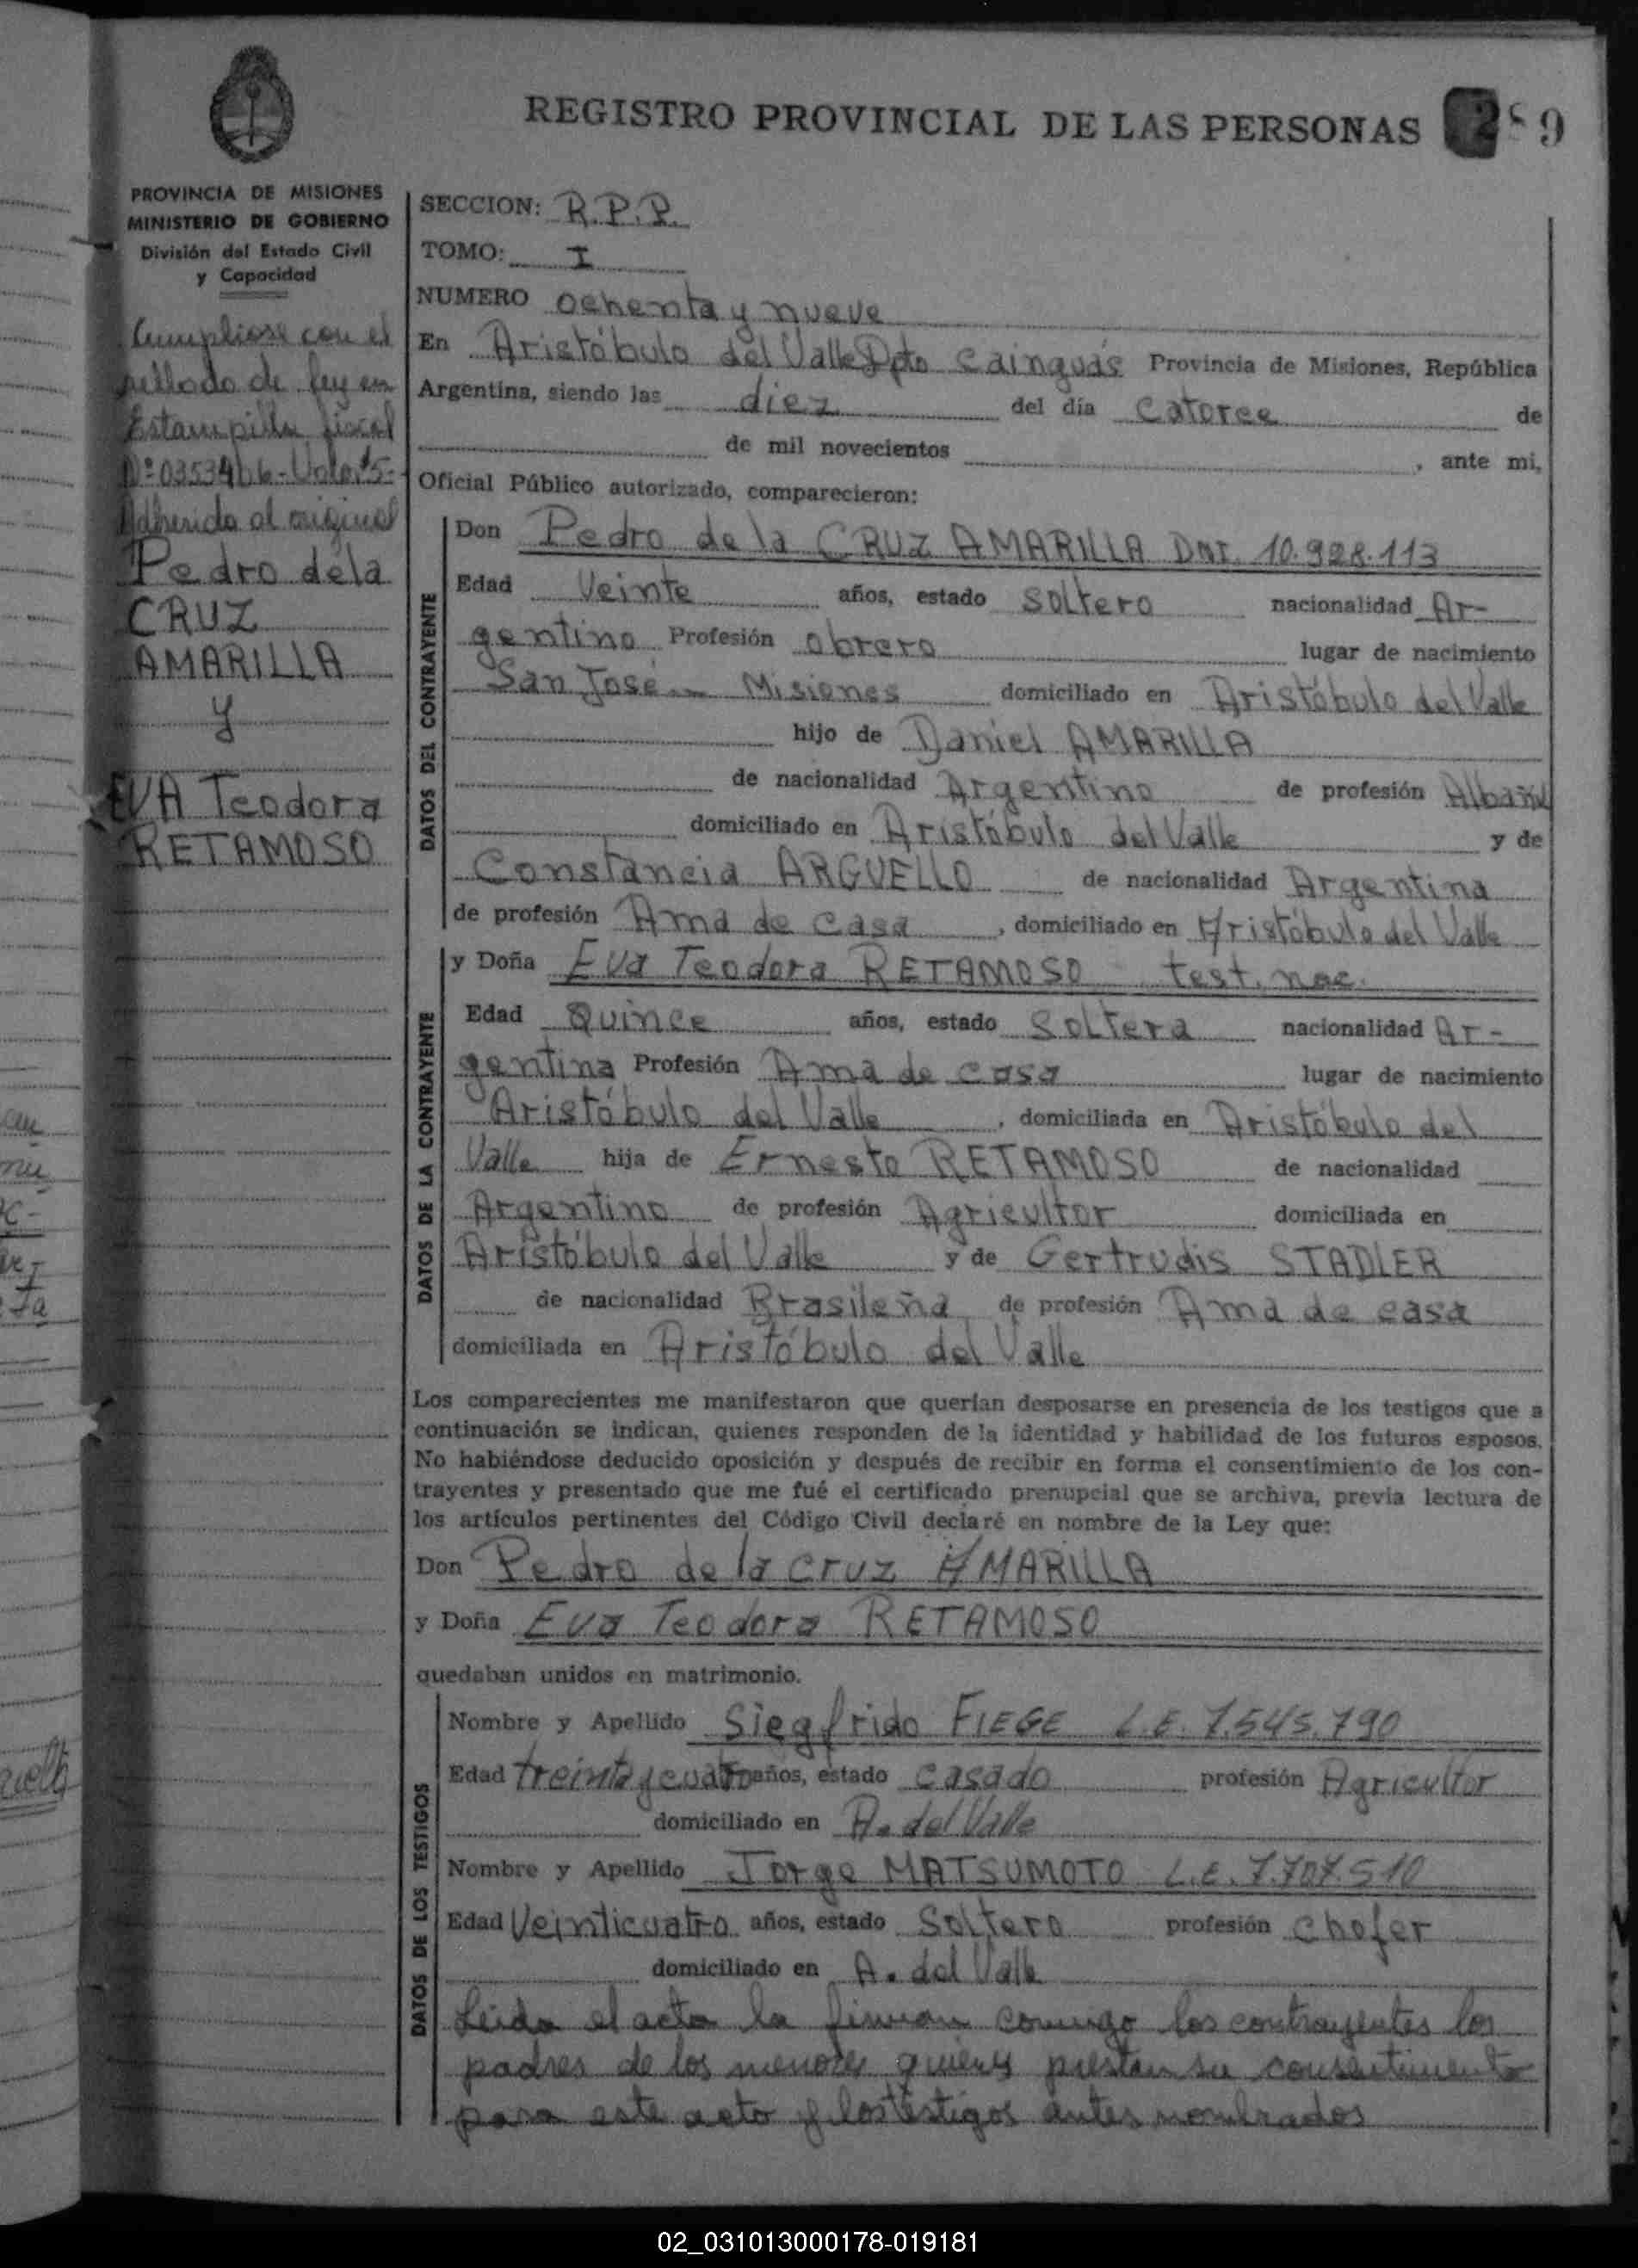 REGISTRO PROVINCIAL DE LAS PERSONAS 289
PROVINCIA DE MISIONES
MINISTERIO DE GOBIERNO
División del Estado Civil
y Capacidad
Cumpliose con el
sellado de ley en
Estampilla fiscal
Nº 0353466-Valor $5-
Adherido al original
Pedro de la
CRUZ
AMARILLA
y
EVA Teodora
RETAMOSO
SECCION: R.P.P.
TOMO: I
NUMERO ochenta y nueve
En Aristóbulo del Valle Dpto Cainguás Provincia de Misiones, República
Argentina, siendo las diez del día catorce de
de mil novecientos , ante mi,
Oficial Público autorizado, comparecieron:
DATOS DEL CONTRAYENTE
Don Pedro de la CRUZ AMARILLA DNI. 10.928.113
Edad Veinte años, estado soltero nacionalidad Ar-
gentino Profesión obrero lugar de nacimiento
San José - Misiones domiciliado en Aristóbulo del Valle
hijo de Daniel AMARILLA
de nacionalidad Argentino de profesión Albañil
domiciliado en Aristóbulo del Valle y de
Constancia ARGUELLO de nacionalidad Argentina
de profesión Ama de casa , domiciliado en Aristóbulo del Valle
DATOS DE LA CONTRAYENTE
y Doña Eva Teodora RETAMOSO test. nac.
Edad Quince años, estado Soltera nacionalidad Ar-
gentina Profesión Ama de casa lugar de nacimiento
Aristóbulo del Valle , domiciliada en Aristóbulo del
Valle hija de Ernesto RETAMOSO de nacionalidad
Argentino de profesión Agricultor domiciliada en
Aristóbulo del Valle y de Gertrudis STADLER
de nacionalidad Brasileña de profesión Ama de casa
domiciliada en Aristóbulo del Valle
Los comparecientes me manifestaron que querían desposarse en presencia de los testigos que a
continuación se indican, quienes responden de la identidad y habilidad de los futuros esposos.
No habiéndose deducido oposición y después de recibir en forma el consentimiento de los con-
trayentes y presentado que me fué el certificado prenupcial que se archiva, previa lectura de
los artículos pertinentes del Código Civil declaré en nombre de la Ley que:
Don Pedro de la cruz AMARILLA
y Doña Eva Teodora RETAMOSO
quedaban unidos en matrimonio.
DATOS DE LOS TESTIGOS
Nombre y Apellido Siegfrido FIEGE L.E. 7.545.790
Edad treinta y cuatro años, estado casado profesión Agricultor
domiciliado en A. del Valle
Nombre y Apellido Jorge MATSUMOTO L.E. 7.707.510
Edad Veinticuatro años, estado Soltero profesión chofer
domiciliado en A. del Valle
Leida el acta la firman conmigo los contrayentes los
padres de los menores quienes prestan su consentimiento
para este acto y los testigos antes nombrados
02_031013000178-019181